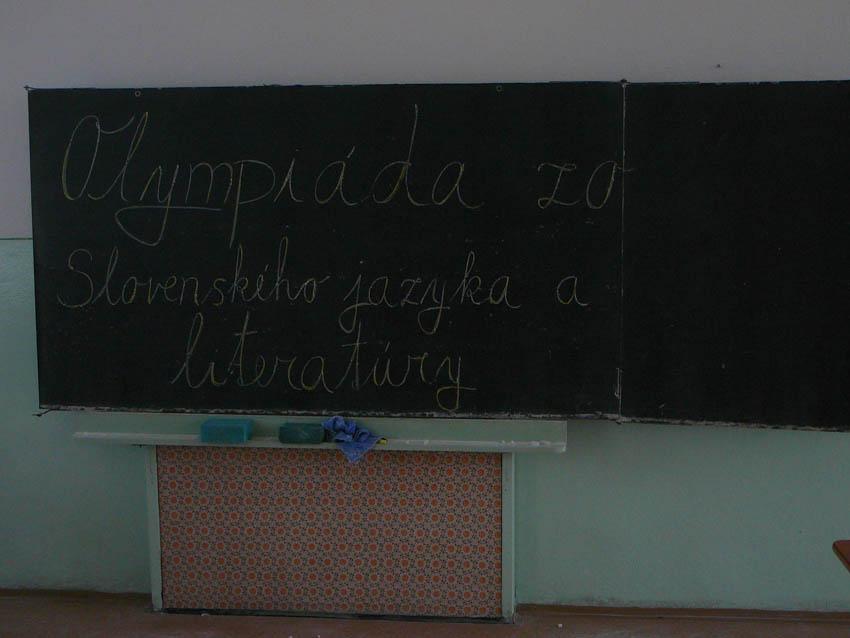 Olympiáda zo
Slovenského jazyka a
literatúry